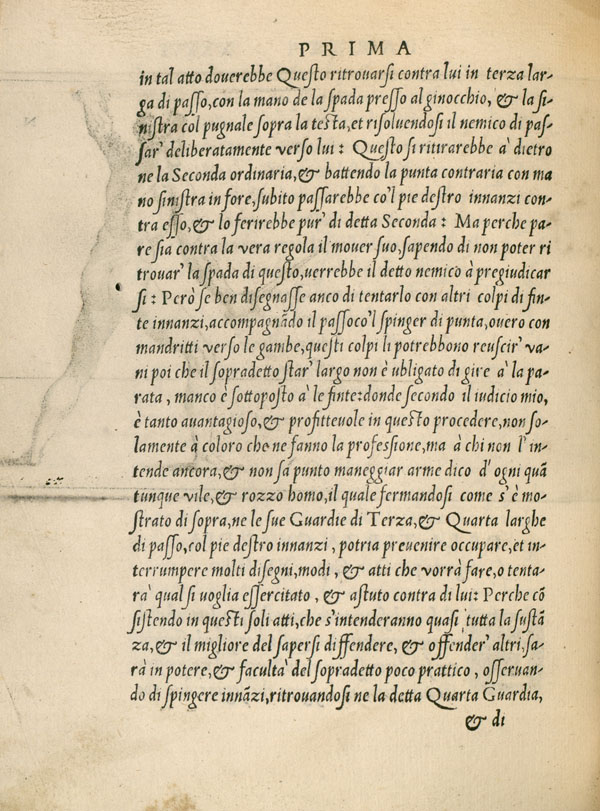 PRIMA
in tal atto douerebbe Questo ritrouarsi contra lui in terza lar-
ga di passo, con la mano de la spada presso al ginocchio, & la si-
nistra col pugnale sopra la testa, et risoluendosi il nemico di pas-
sar' deliberatamente verso lui: Questo si ritirarebbe à dietro
ne la Seconda ordinaria, & battendo la punta contraria con ma
no sinistra in fore, subito passarebbe co'l pie destro innanzi con-
tra esso, & lo ferirebbe pur' di detta Seconda: Ma perche pa-
re sia contra la vera regola il mouer suo, sapendo di non poter ri
trouar' la spada di questo, uerrebbe il detto nemico à pregiudicar
si: Però se ben disegnasse anco di tentarlo con altri colpi di fin-
te innanzi, accompagnãdo il passo co'l spinger di punta, ouero con
mandritti verso le gambe, questi colpi li potrebbono reuscir' va-
ni poi che il sopradetto star' largo non è ubligato di gire à la pa-
rata, manco è sottoposto à le finte: donde secondo il iudicio mio,
è tanto auantagioso, & profitteuole in questo procedere, non so-
lamente à coloro che ne fanno la professione, ma à chi non l'in-
tende ancora, & non sa punto maneggiar arme dico d'ogni quã
tunque vile, & rozzo homo, il quale fermandosi come s'è mo-
strato di sopra, ne le sue Guardie di Terza, & Quarta larghe
di passo, col pie destro innanzi, potria preuenire occupare, et in-
terrumpere molti disegni, modi, & atti che vorrà fare, o tenta-
rà qual si uoglia essercitato, & astuto contra di lui: Perche cõ
sistendo in questi soli atti, che s'intenderanno quasi tutta la sustã
za, & il migliore del sapersi diffendere, & offender' altri, sa-
rà in potere, & facultà del sopradetto poco prattico, osseruan-
do di spingere innãzi, ritrouandosi ne la detta Quarta Guardia,
& di